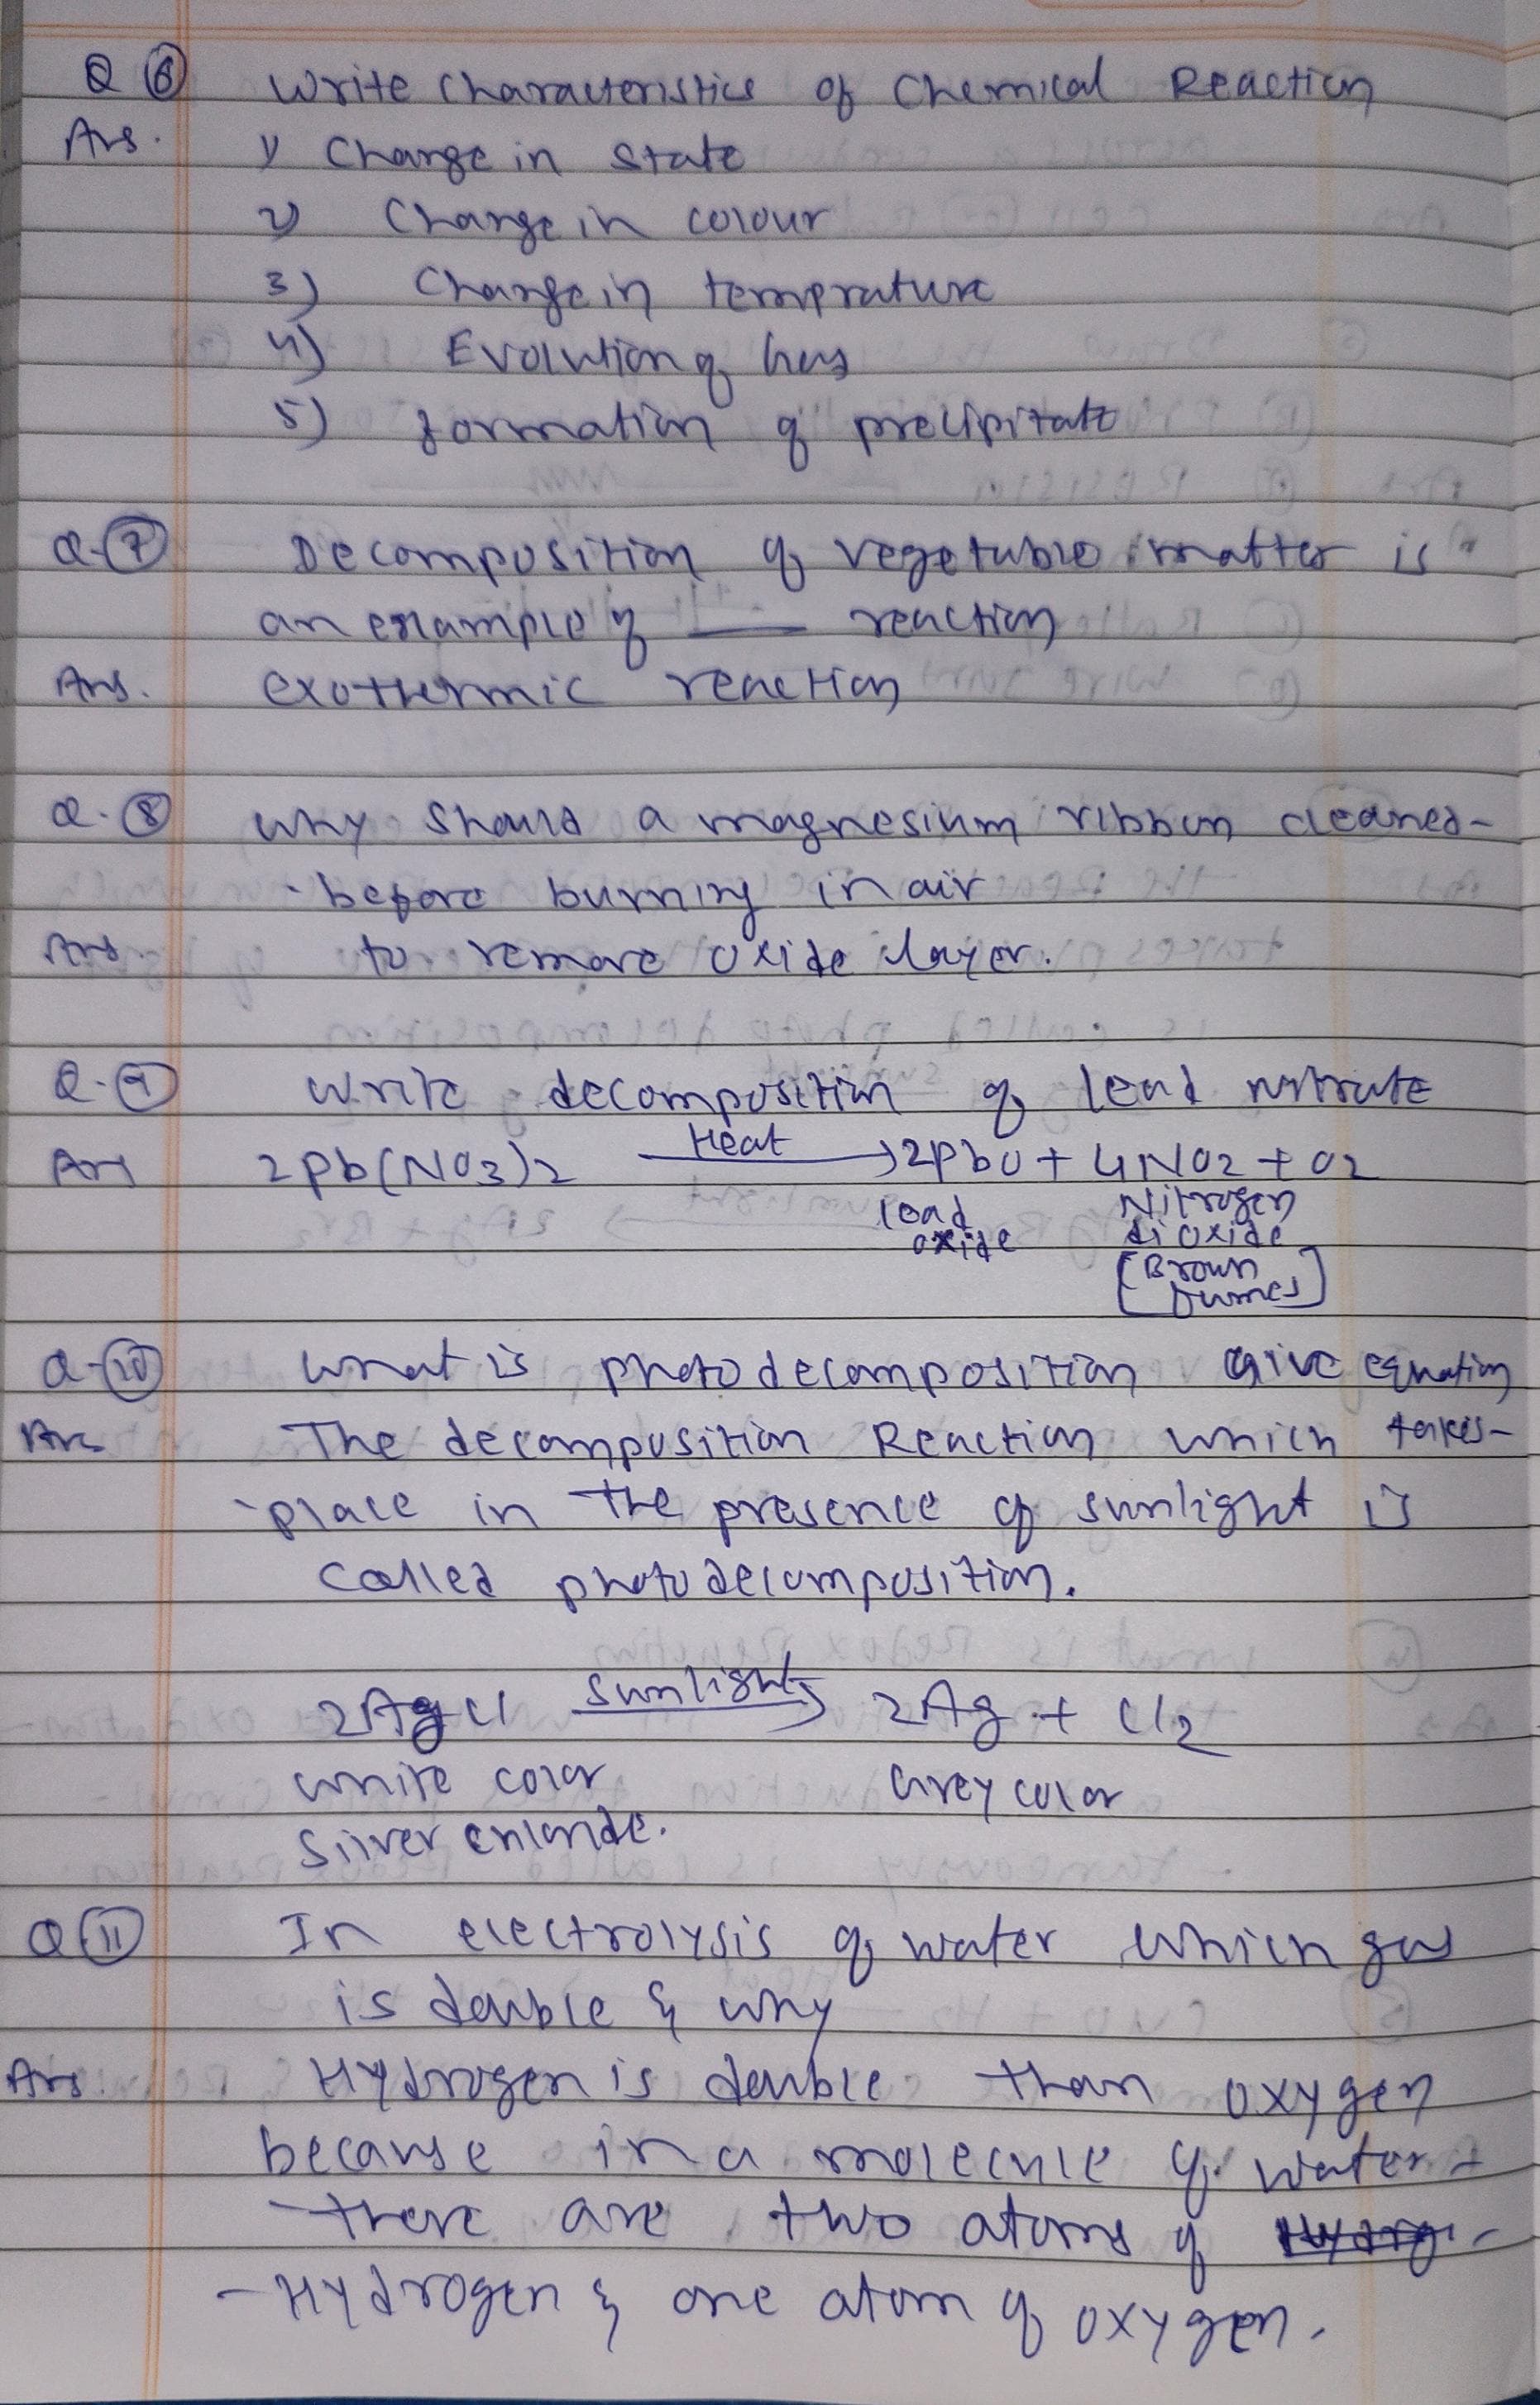 Q 6 Write Characteristics of Chemical Reaction
Ans. 1) Change in state
2) Change in colour
3) Change in temprature
4) Evolution of Gas
5) formation of precipitate
Q-7 Decomposition of vegetable matter is
an example of ___ reaction
Ans. exothermic reaction
Q.8 Why should a magnesium ribbon cleaned-
-before burning in air
Ans. to remove oxide layer.
Q-9 Write decomposition of lead nitrate
Ans 2Pb(NO3)2 Heat → 2PbO + 4NO2 + O2
lead oxide Nitrogen dioxide
[Brown fumes]
Q-10 What is photodecomposition Give equation
Ans The decomposition Reaction which takes-
-place in the presence of sunlight is
called photodecomposition.
2AgCl Sunlight → 2Ag + Cl2
white color Grey color
Silver chloride.
Q 11 In electrolysis of water which gas
is double & why
Ans. Hydrogen is double than oxygen
because in a molecule of water-
there are two atoms of
-Hydrogen & one atom of oxygen.